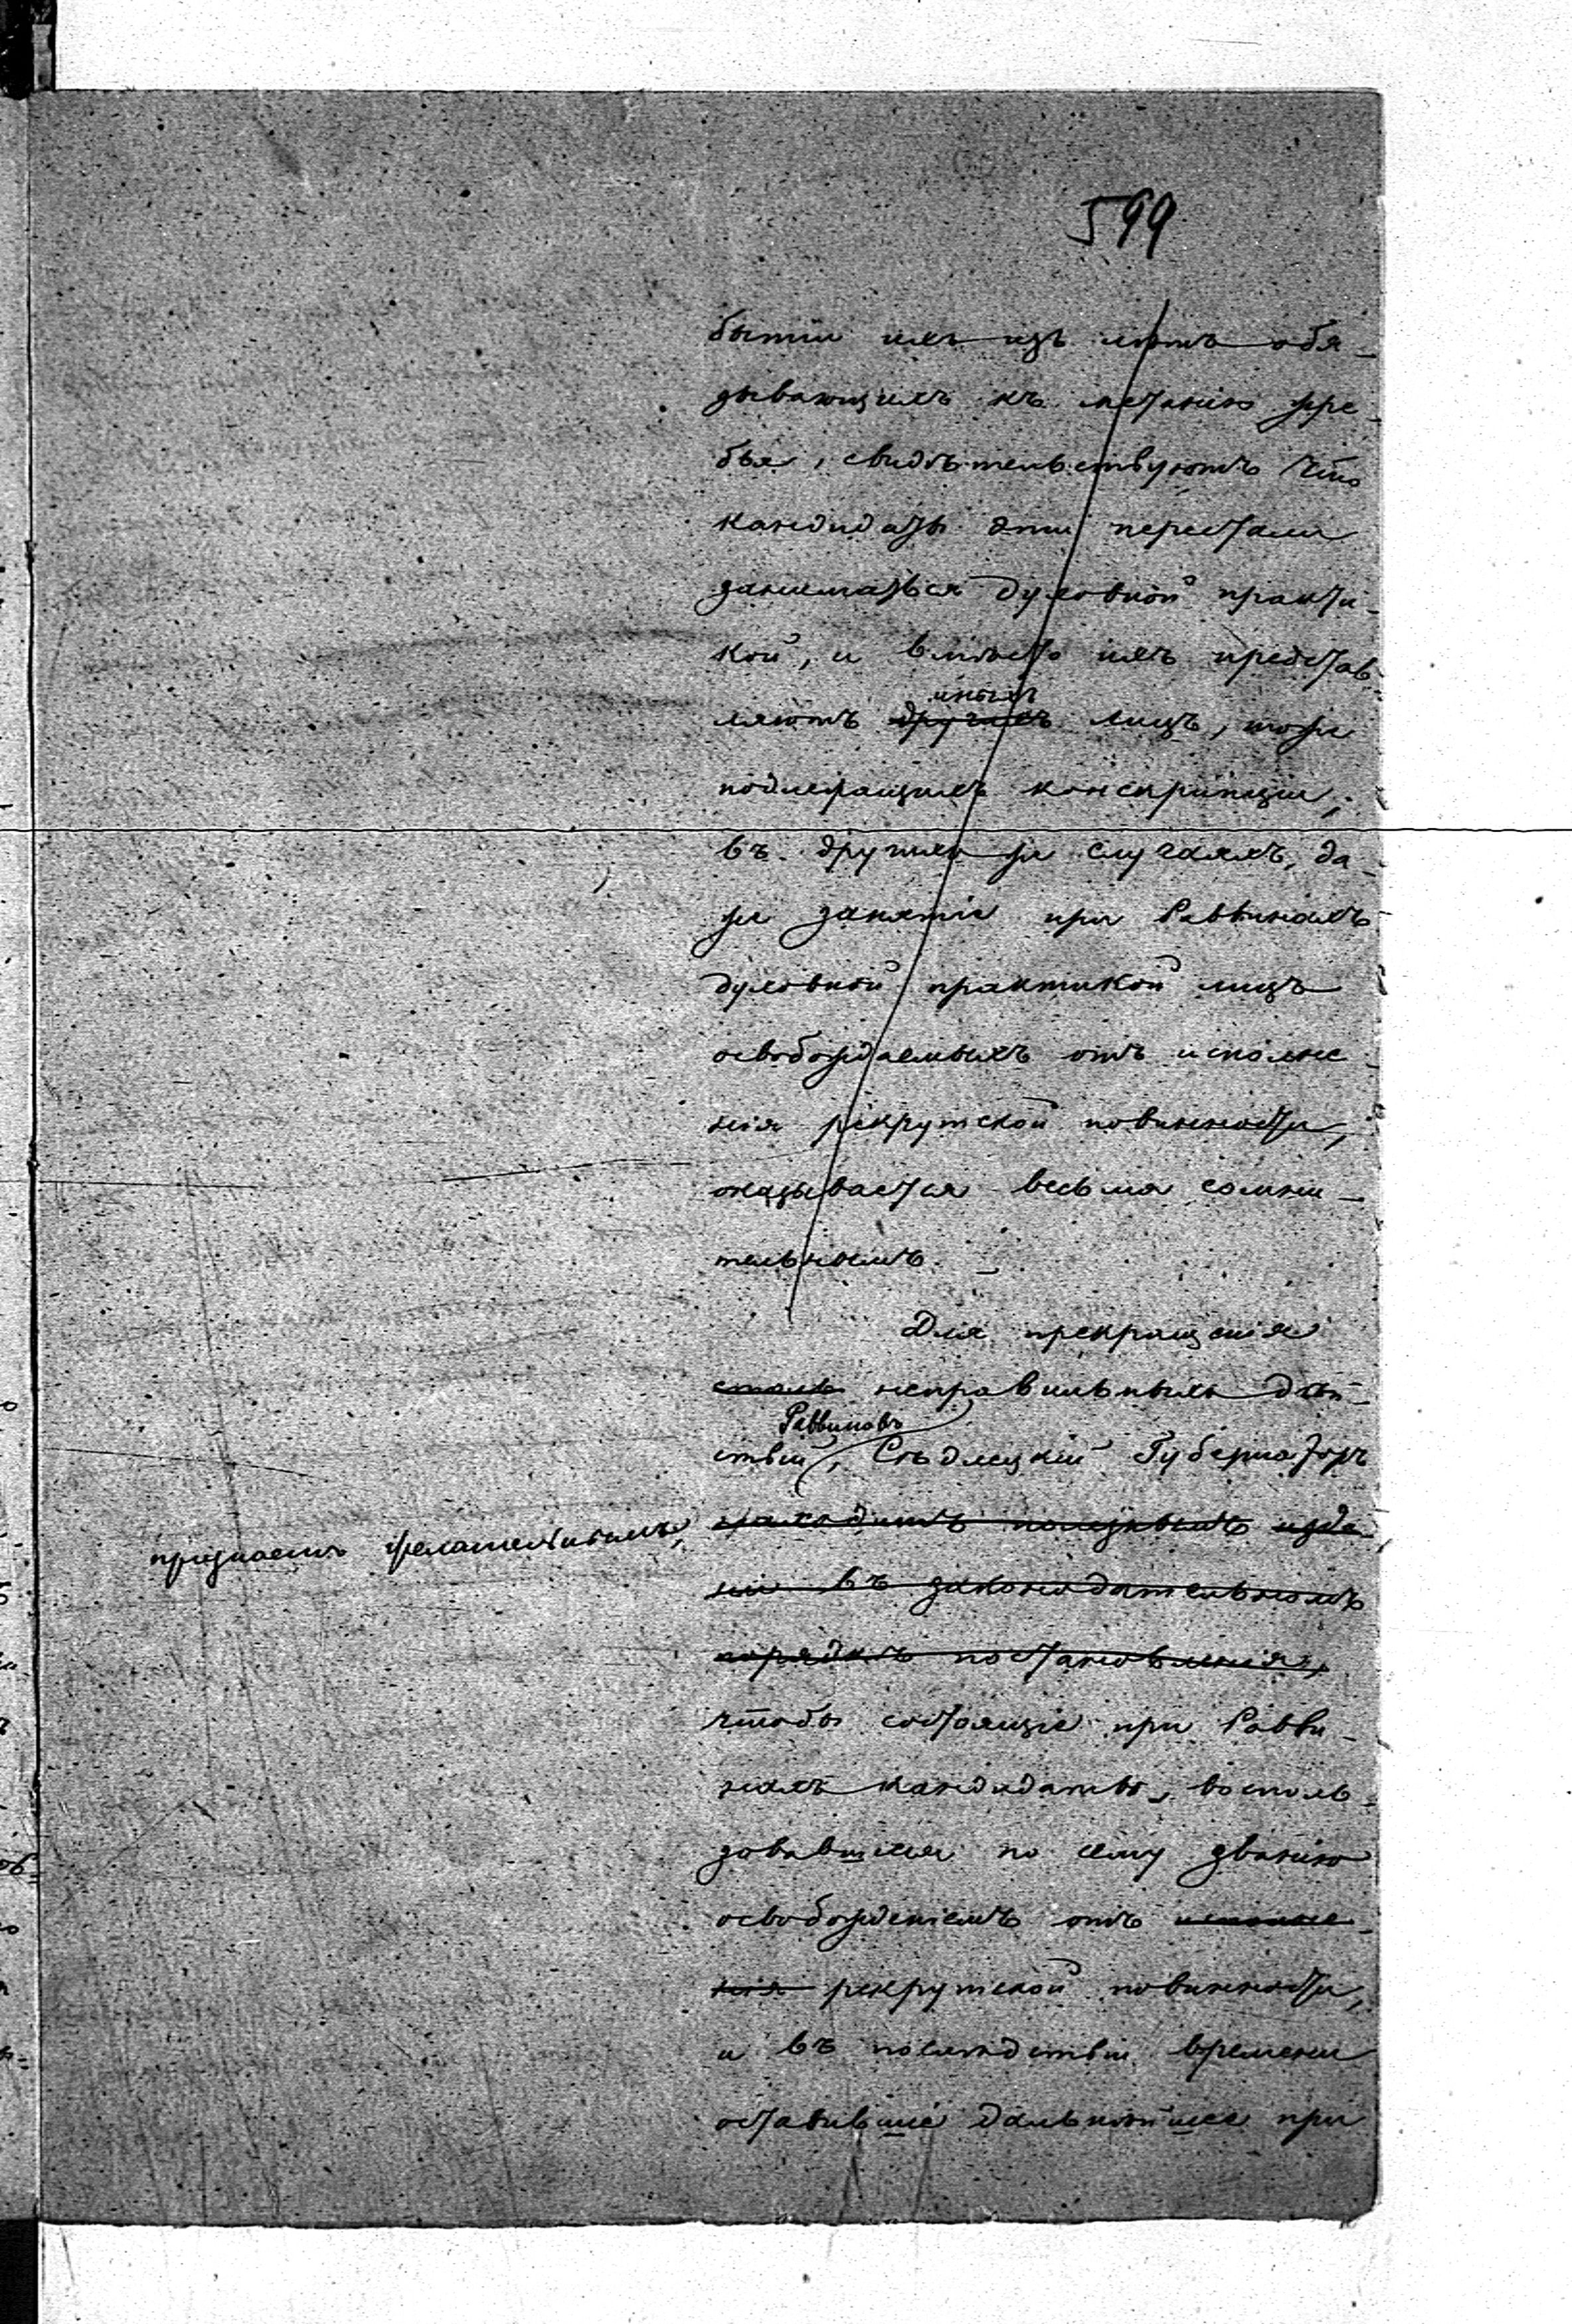 599
бытіи ихъ изъ лѣтъ обя-
зывающихъ къ метанію жре-
бья, свидѣтельствуютъ что
кандидаты эти перестали
заниматься духовной практи-
кой, и вмѣсто ихъ представ-
ляютъ другихъ иныхъ лицъ, тоже
подлежащихъ конскрипціи;
въ другихъ же случаяхъ, да-
же занятіе при Раввинахъ
духовной практикой лицъ
освобождаемыхъ отъ исполне-
нія рекрутской повинности,
оказывается весьма сомни-
тельнымъ. –
Для прекращенія
столь неправильныхъ дѣй-
ствій Раввиновъ, Сѣдлецкій Губернаторъ
признаетъ желательнымъ,
находитъ полезнымъ изда-
ніе въ законодательномъ
порядкѣ постановленія,
чтобы состоящіе при Равви-
нахъ кандидаты, восполь-
зовавшіеся по сему званію
освобожденіемъ отъ исполне-
нія рекрутской повинности,
и въ послѣдствіи времени
оставившіе дальнѣйшее при